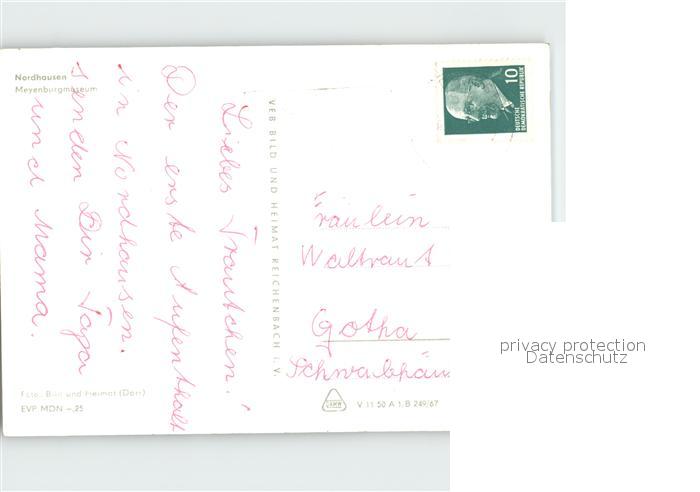 Nordhausen
Meyenburgmuseum
Liebes Trautchen!
Der erste Aufenthalt
in Nordhausen.
senden Dir Papa
und Mama.
VEB BILD UND HEIMAT REICHENBACH i. V.
10
DEUTSCHE
DEMOKRATISCHE REPUBLIK
Fräulein
Waltraut
Gotha
Schwabhäus
privacy protection
Datenschutz
Foto: Bild und Heimat (Dorr)
EVP MDN -,25
V 11 50 A 1/B 249/67